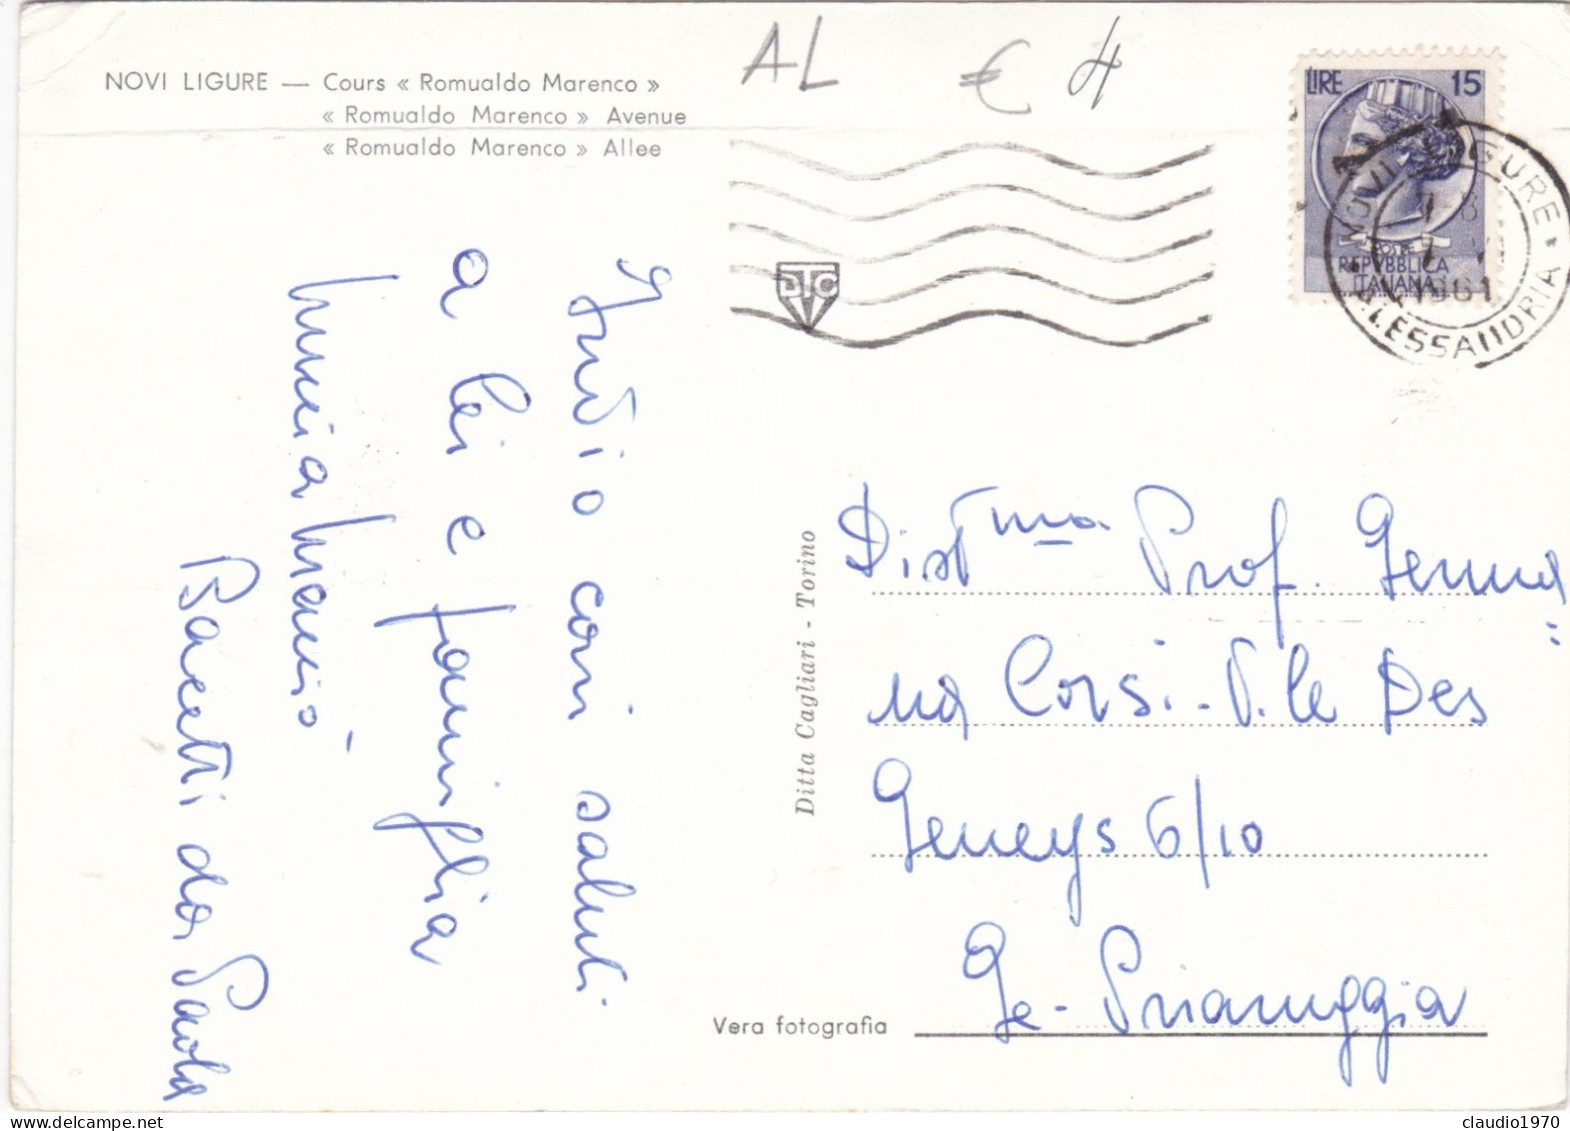 NOVI LIGURE — Cours « Romualdo Marenco »
« Romualdo Marenco » Avenue
« Romualdo Marenco » Allee
AL € 4
LIRE 15
POSTE
REPVBBLICA
ITALIANA
NOVI LIGURE * ALESSANDRIA
1961
DTC
cari saluti
a lei e famiglia
Bacetti da Paola
Ditta Cagliari - Torino
Dist ma Prof. Gemma
na Corsi - V.le Des
Geneys 6/10
Ge - Priaruggia
Vera fotografia
claudio1970